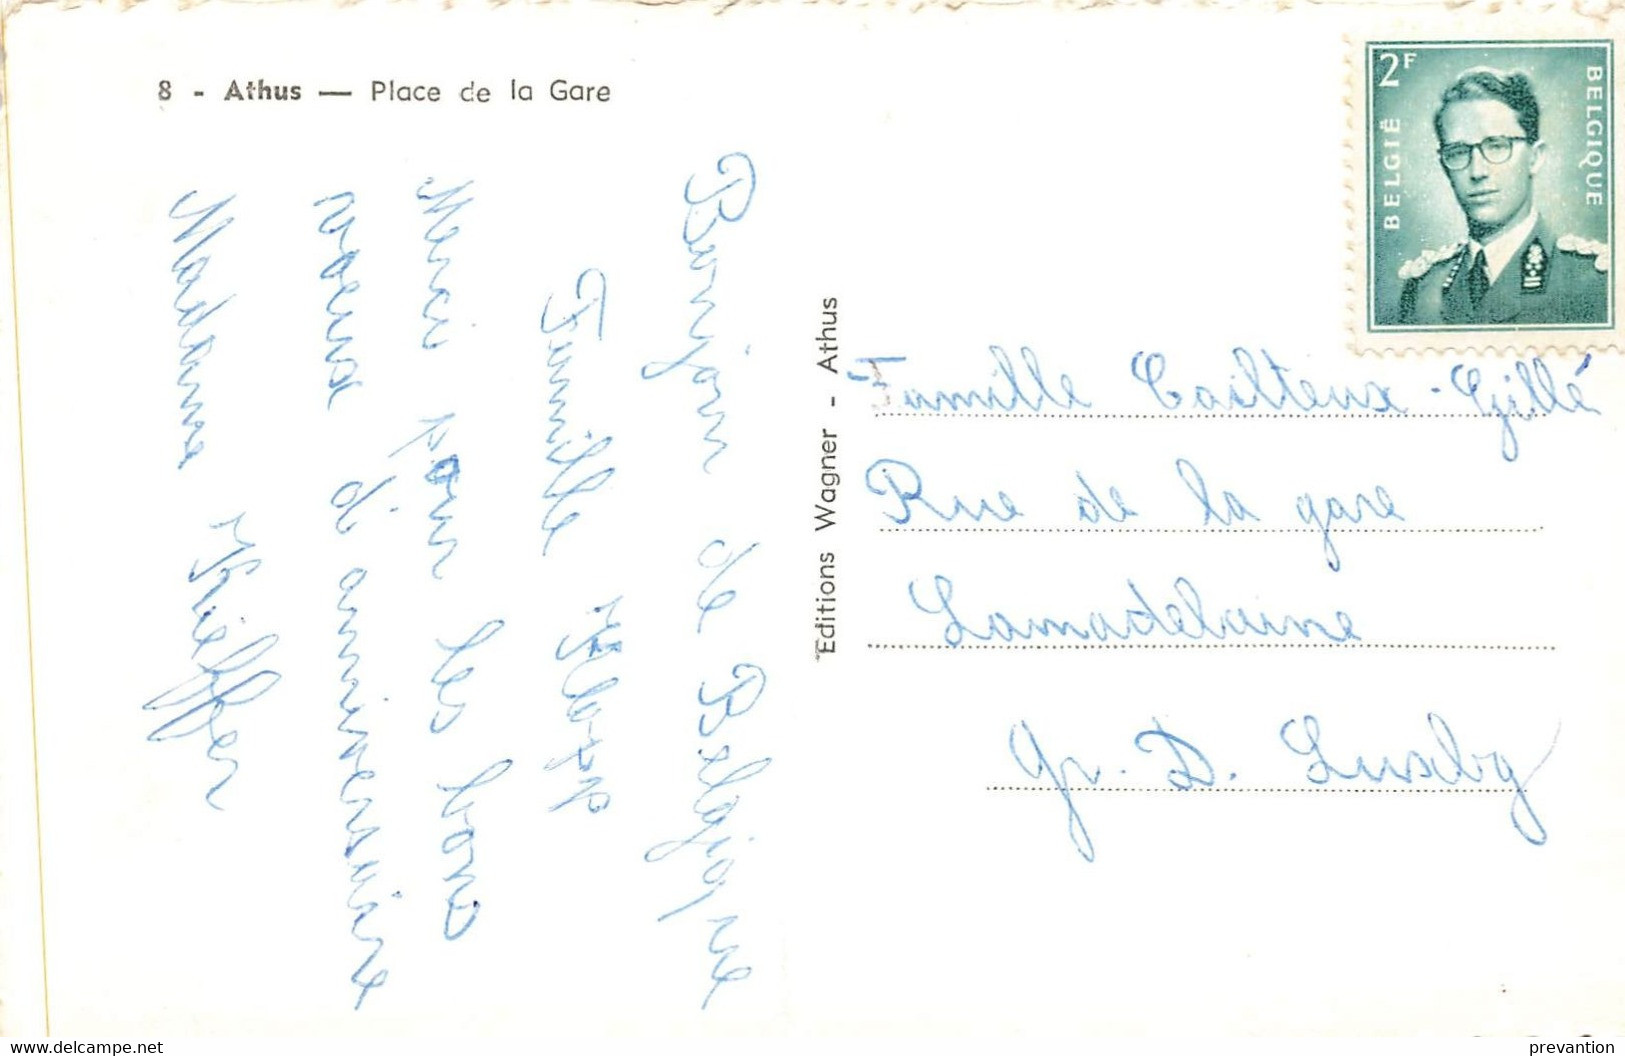 8 - Athus — Place de la Gare
2F
BELGIË
BELGIQUE
Bonjour de Belgique
Famille
Merci pour les bons
voeux d'anniversaire
Madame Kieffer
Editions Wagner - Athus
Famille Cailteux - Gillé
Rue de la gare
Lamadelaine
Gr. D. Luxbg
www.delcampe.net
prevantion